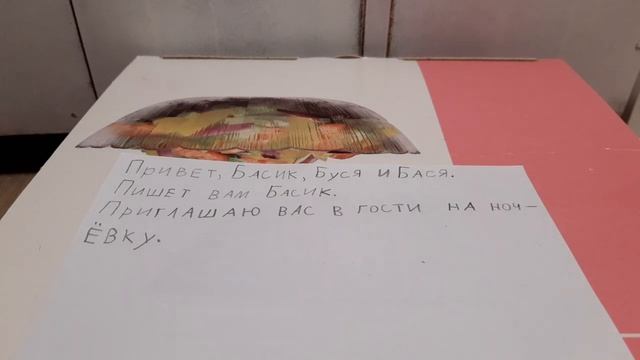 Привет, Басик, Буся и Бася.
Пишет вам Басик.
Приглашаю вас в гости на ноч-
ёвку.